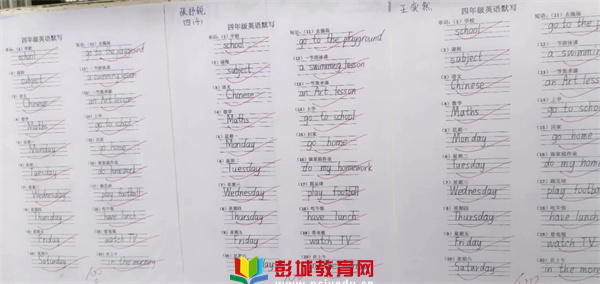 四年级英语默写
单词：（1）学校
school
（2）课程
subject
（3）语文
Chinese
（4）数学
Maths
（5）星期一
Monday
（6）星期二
Tuesday
（7）星期三
Wednesday
（8）星期四
Thursday
（9）星期五
Friday
（10）星期六
Saturday
短语：（11）去操场
go to the playground
（12）一节游泳课
a swimming lesson
（13）一节美术课
an Art lesson
（14）上学
go to school
（15）回家
go home
do homework
（17）踢足球
play football
（18）吃午饭
have lunch
（19）看电视
watch TV
（20）在上午
in the morning
100
四年级英语默写
单词：（1）学校
school
（2）课程
subject
（3）语文
Chinese
（4）数学
Maths
（5）星期一
Monday
（6）星期二
Tuesday
（7）星期三
Wednesday
（8）星期四
Thursday
（9）星期五
Friday
（10）星期六
短语：（11）去操场
go to the playground
（12）一节游泳课
a swimming lesson
（13）一节美术课
an Art lesson
（14）上学
go to school
（15）回家
go home
（16）做家庭作业
do my homework
（17）踢足球
play football
（18）吃午饭
have lunch
（19）看电视
watch TV
王奕然
四年级英语默写
单词：（1）学校
school
（2）课程
subject
（3）语文
Chinese
（4）数学
Maths
（5）星期一
Monday
（6）星期二
Tuesday
（7）星期三
Wednesday
（8）星期四
Thursday
（9）星期五
Friday
（10）星期六
Saturday
短语：（11）去操场
go to the
a swimming
an Art
go to school
go home
do my
play football
have lunch
watch TV
in the
彭城教育网